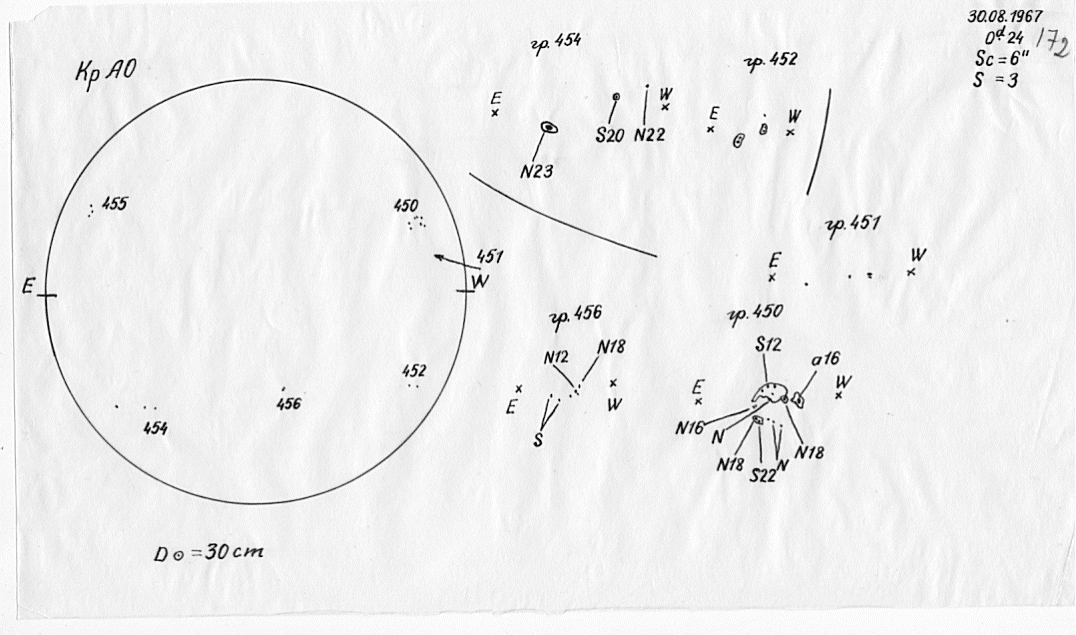 30.08.1967
0ᵈ24
172
Sc = 6"
S = 3
Кр АО
гр. 454
E
W
S20
N22
N23
гр. 452
E
W
455
450
451
E
W
452
456
454
гр. 451
E
W
гр. 456
N12
N18
E
W
S
гр. 450
S12
a16
E
W
N16
N
N18
S22
N
N18
D ⊙ = 30 cm